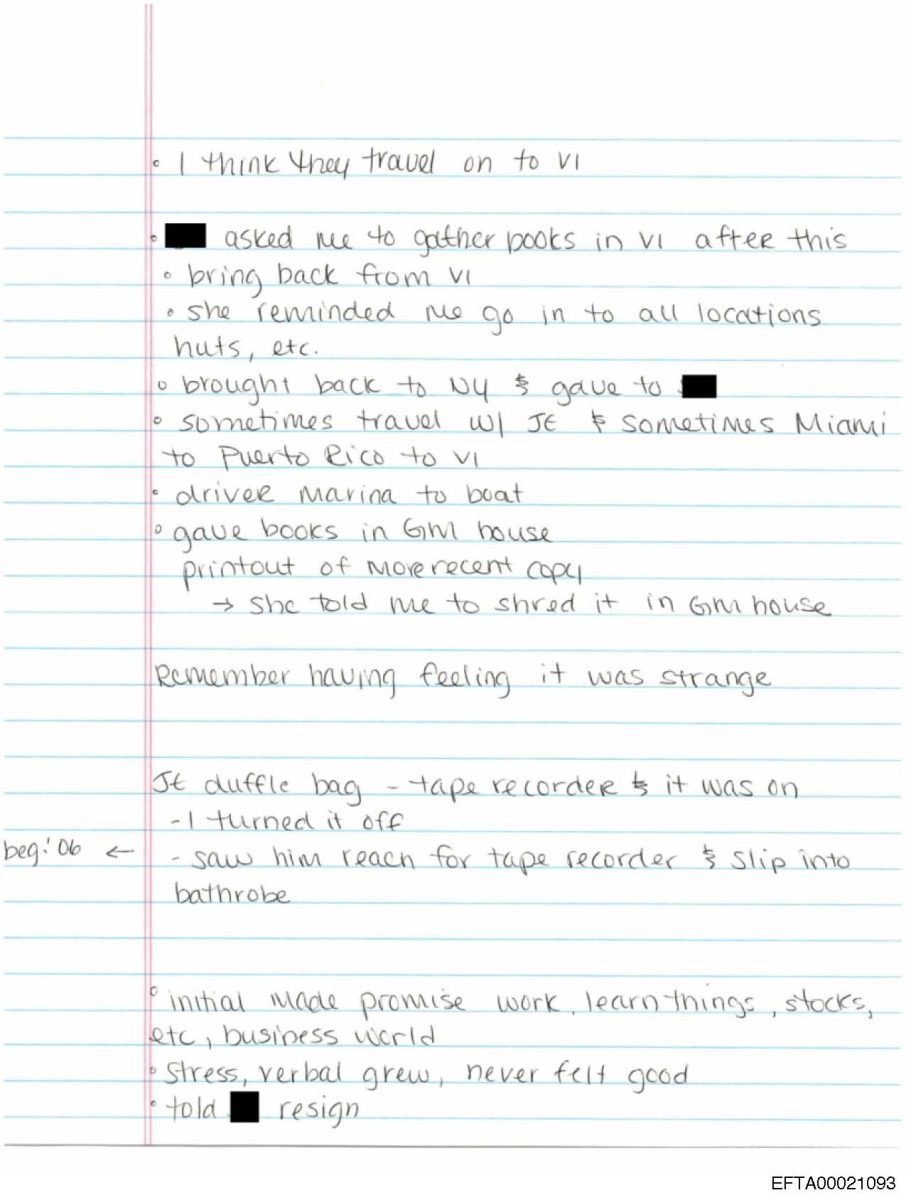 • I think they travel on to VI
• asked me to gather books in VI after this
• bring back from VI
• she reminded me go in to all locations
huts, etc.
• brought back to NY & gave to
• sometimes travel w/ JE & sometimes Miami
to Puerto Rico to VI
• driver marina to boat
• gave books in GM house
printout of more recent copy
→ she told me to shred it in GM house
Remember having feeling it was strange
JE duffle bag - tape recorder & it was on
- I turned it off
beg. '06 ← - saw him reach for tape recorder & slip into
bathrobe
• initial made promise work, learn things, stocks,
etc, business world
• stress, verbal grew, never felt good
• told resign
EFTA00021093